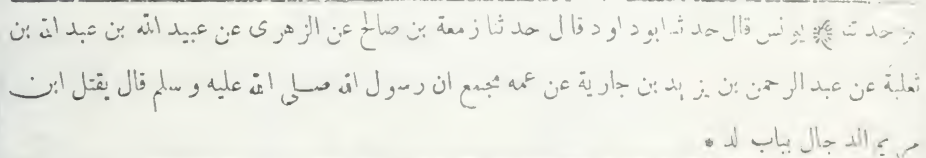 حدثنا يونس قال حدثنا ابو داود قال حدثنا زمعة بن صالح عن الزهري عن عبيد الله بن عبد الله بن
ثعلبة عن عبد الرحمن بن يزيد بن جارية عن عمه مجمع ان رسول الله صلى الله عليه و سلم قال يقتل ابن
مريم الدجال بباب لد *